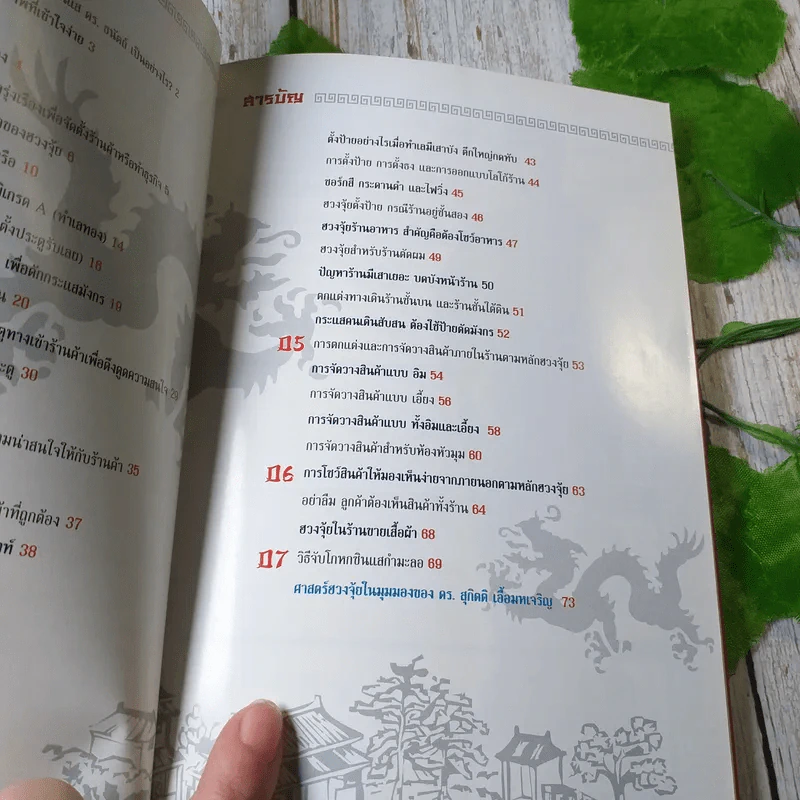 ดร. ธนัตถ์ เป็นอย่างไร? 2
ที่เข้าใจง่าย 3
4
รุ่งเรืองเพื่อจัดตั้งร้านค้าหรือทำธุรกิจ 5
ของฮวงจุ้ย 6
10
เกรด A (ทำเลทอง) 14
ตั้งประตูรับเลย) 16
เพื่อดักกระแสมังกร 19
20
ทางเข้าร้านค้าเพื่อดึงดูดความสนใจ 29
30
น่าสนใจให้กับร้านค้า 35
ที่ถูกต้อง 37
38
สารบัญ
ตั้งป้ายอย่างไรเมื่อทำเลมีเสาบัง ตึกใหญ่กดทับ 43
การตั้งป้าย การตั้งธง และการออกแบบโลโก้ร้าน 44
ชอร์กสี กระดานดำ และไฟวิ่ง 45
ฮวงจุ้ยตั้งป้าย กรณีร้านอยู่ชั้นสอง 46
ฮวงจุ้ยร้านอาหาร สำคัญคือต้องโชว์อาหาร 47
ฮวงจุ้ยสำหรับร้านตัดผม 49
ปัญหาร้านมีเสาเยอะ บดบังหน้าร้าน 50
ตกแต่งทางเดินร้านชั้นบน และร้านชั้นใต้ดิน 51
กระแสคนเดินสับสน ต้องใช้ป้ายตัดมังกร 52
05 การตกแต่งและการจัดวางสินค้าภายในร้านตามหลักฮวงจุ้ย 53
การจัดวางสินค้าแบบ อิม 54
การจัดวางสินค้าแบบ เอี้ยง 56
การจัดวางสินค้าแบบ ทั้งอิมและเอี้ยง 58
การจัดวางสินค้าสำหรับห้องหัวมุม 60
06 การโชว์สินค้าให้มองเห็นง่ายจากภายนอกตามหลักฮวงจุ้ย 63
อย่าลืม ลูกค้าต้องเห็นสินค้าทั้งร้าน 64
ฮวงจุ้ยในร้านขายเสื้อผ้า 68
07 วิธีจับโกหกซินแสกำมะลอ 69
ศาสตร์ฮวงจุ้ยในมุมมองของ ดร. สุกิตติ เอื้อมหเจริญ 73